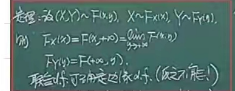 定理:设(X,Y)~F(x,y), X~Fx(x), Y~Fy(y),
则 Fx(x)=F(x,+∞)=lim F(x,y)
y→+∞
Fy(y)=F(+∞,y).
联合d.f.可确定边缘d.f.(反之不能!)